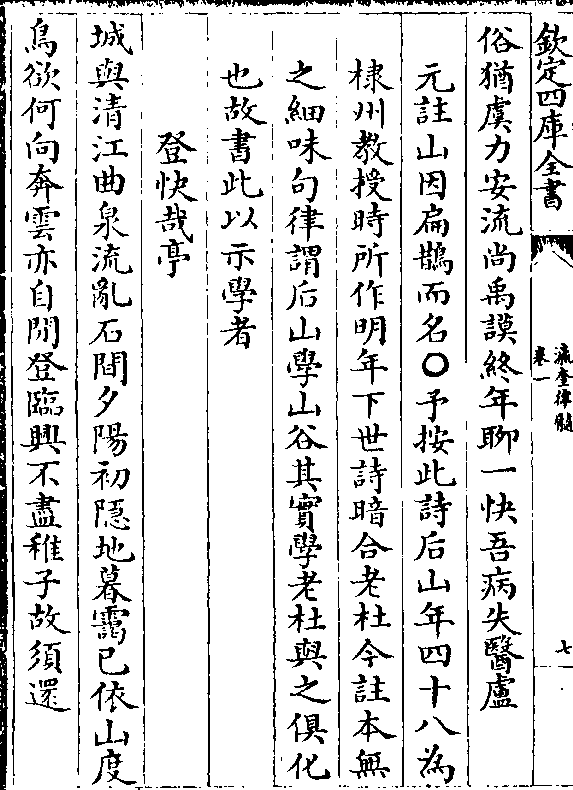 欽定四庫全書
瀛奎律髓
卷一
七
俗猶虞力安流尚禹謨終年聊一快吾病失醫盧
元註山因扁鵲而名〇予按此詩后山年四十八為
棣州教授時所作明年下世詩暗合老杜今註本無
之細味句律謂后山學山谷其實學老杜與之俱化
也故書此以示學者
登快哉亭
城與清江曲泉流亂石間夕陽初隱地暮靄已依山度
鳥欲何向奔雲亦自閒登臨興不盡稚子故須還